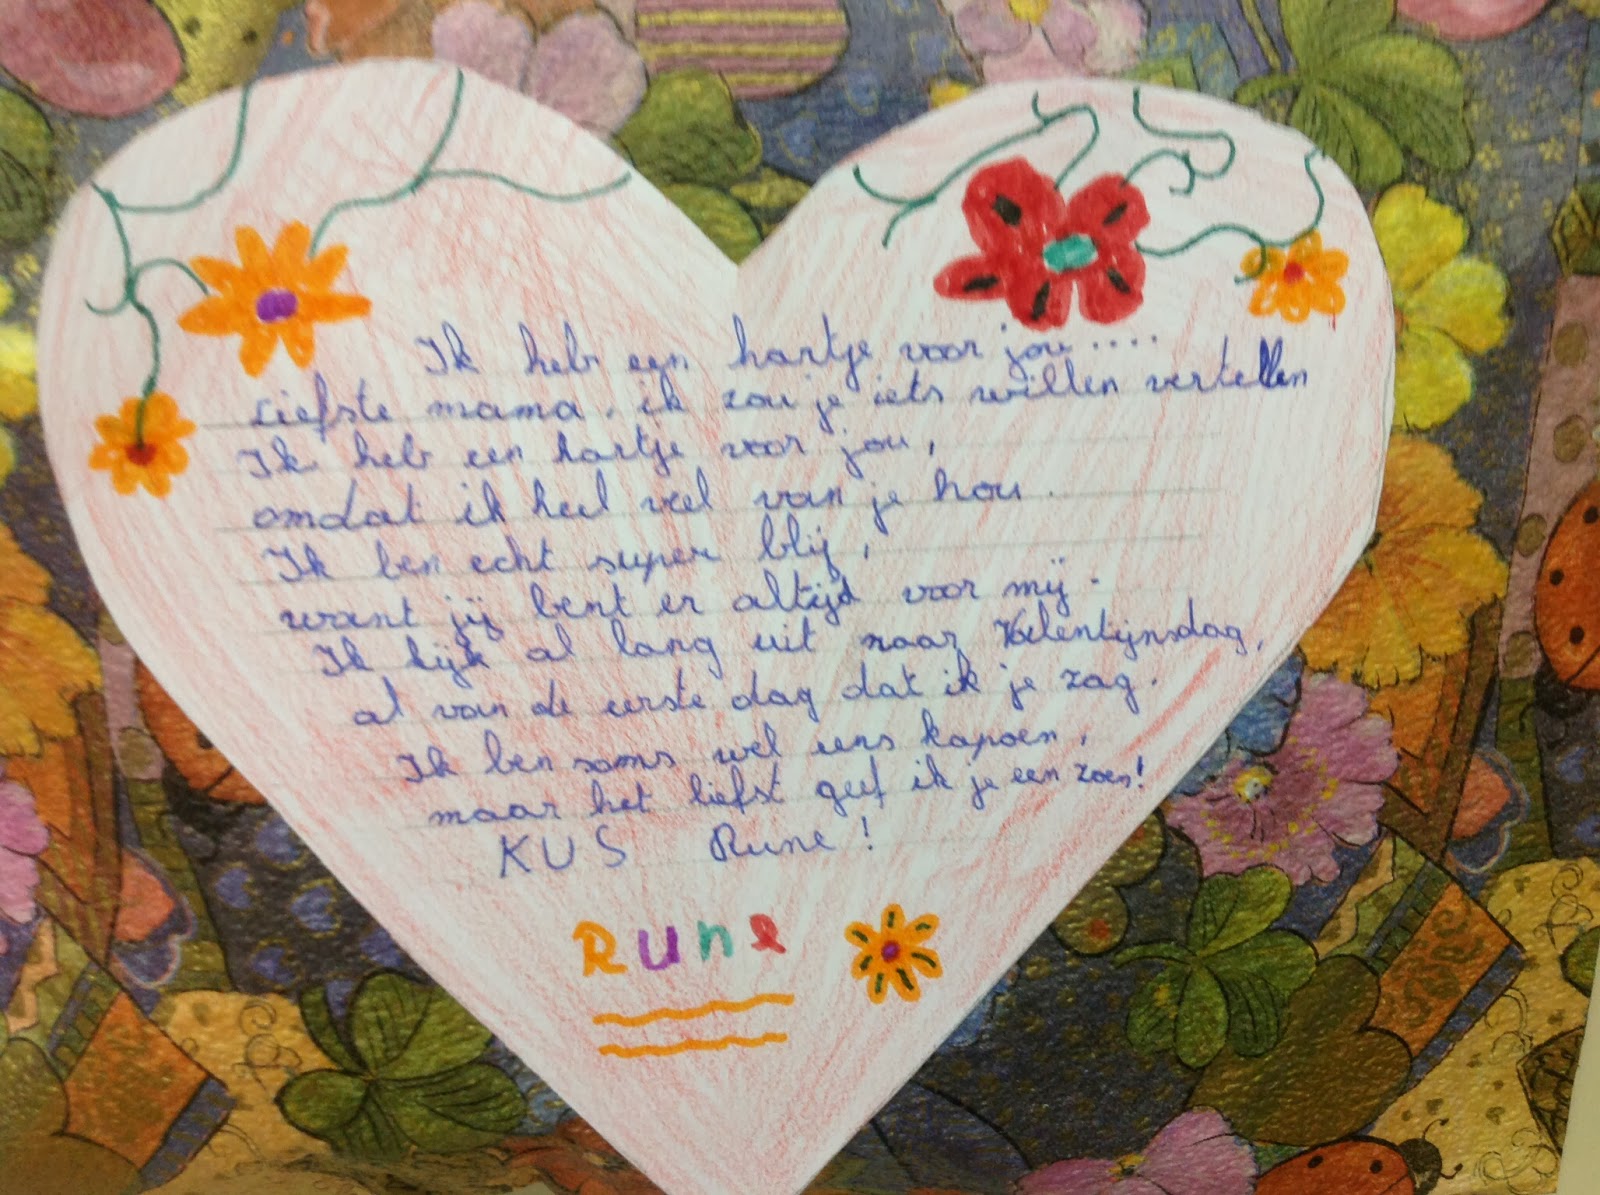 Ik heb een hartje voor jou....
Liefste mama, ik zou je iets willen vertellen
Ik heb een hartje voor jou,
omdat ik heel veel van je hou.
Ik ben echt super blij,
want jij bent er altijd voor mij.
Ik kijk al lang uit naar Valentijnsdag,
al van de eerste dag dat ik je zag.
Ik ben soms wel eens kapoen,
maar het liefst geef ik je een zoen!
KUS Rune!
Rune